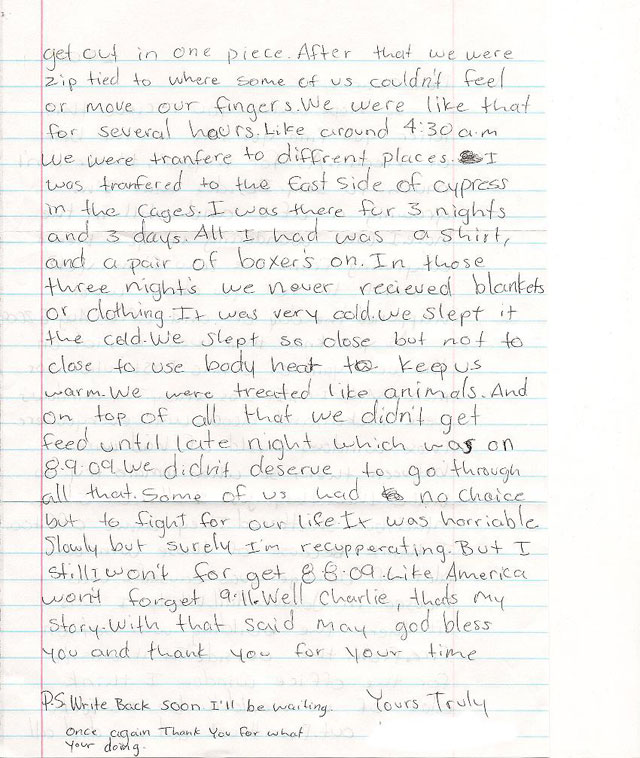 get out in one piece. After that we were
zip tied to where some of us couldn't feel
or move our fingers. We were like that
for several hours. Like around 4:30 a.m
we were tranfere to diffrent places. I
was tranfered to the East side of cypress
in the cages. I was there for 3 nights
and 3 days. All I had was a shirt,
and a pair of boxer's on. In those
three night's we never recieved blankets
or clothing. It was very cold. We slept it
the cold. We slept so close but not to
close to use body heat to keep us
warm. We were treated like animals. And
on top of all that we didn't get
feed until late night which was on
8.9.09. We didn't deserve to go through
all that. Some of us had no choice
but to fight for our life. It was horriable
Slowly but surely I'm recupperating. But I
still I won't for get 8.8.09. Like America
won't forget 9.11. Well Charlie, thats my
story. With that said may god bless
you and thank you for your time
P.S. Write Back soon I'll be waiting. Yours Truly
Once again Thank You for what
your doing.